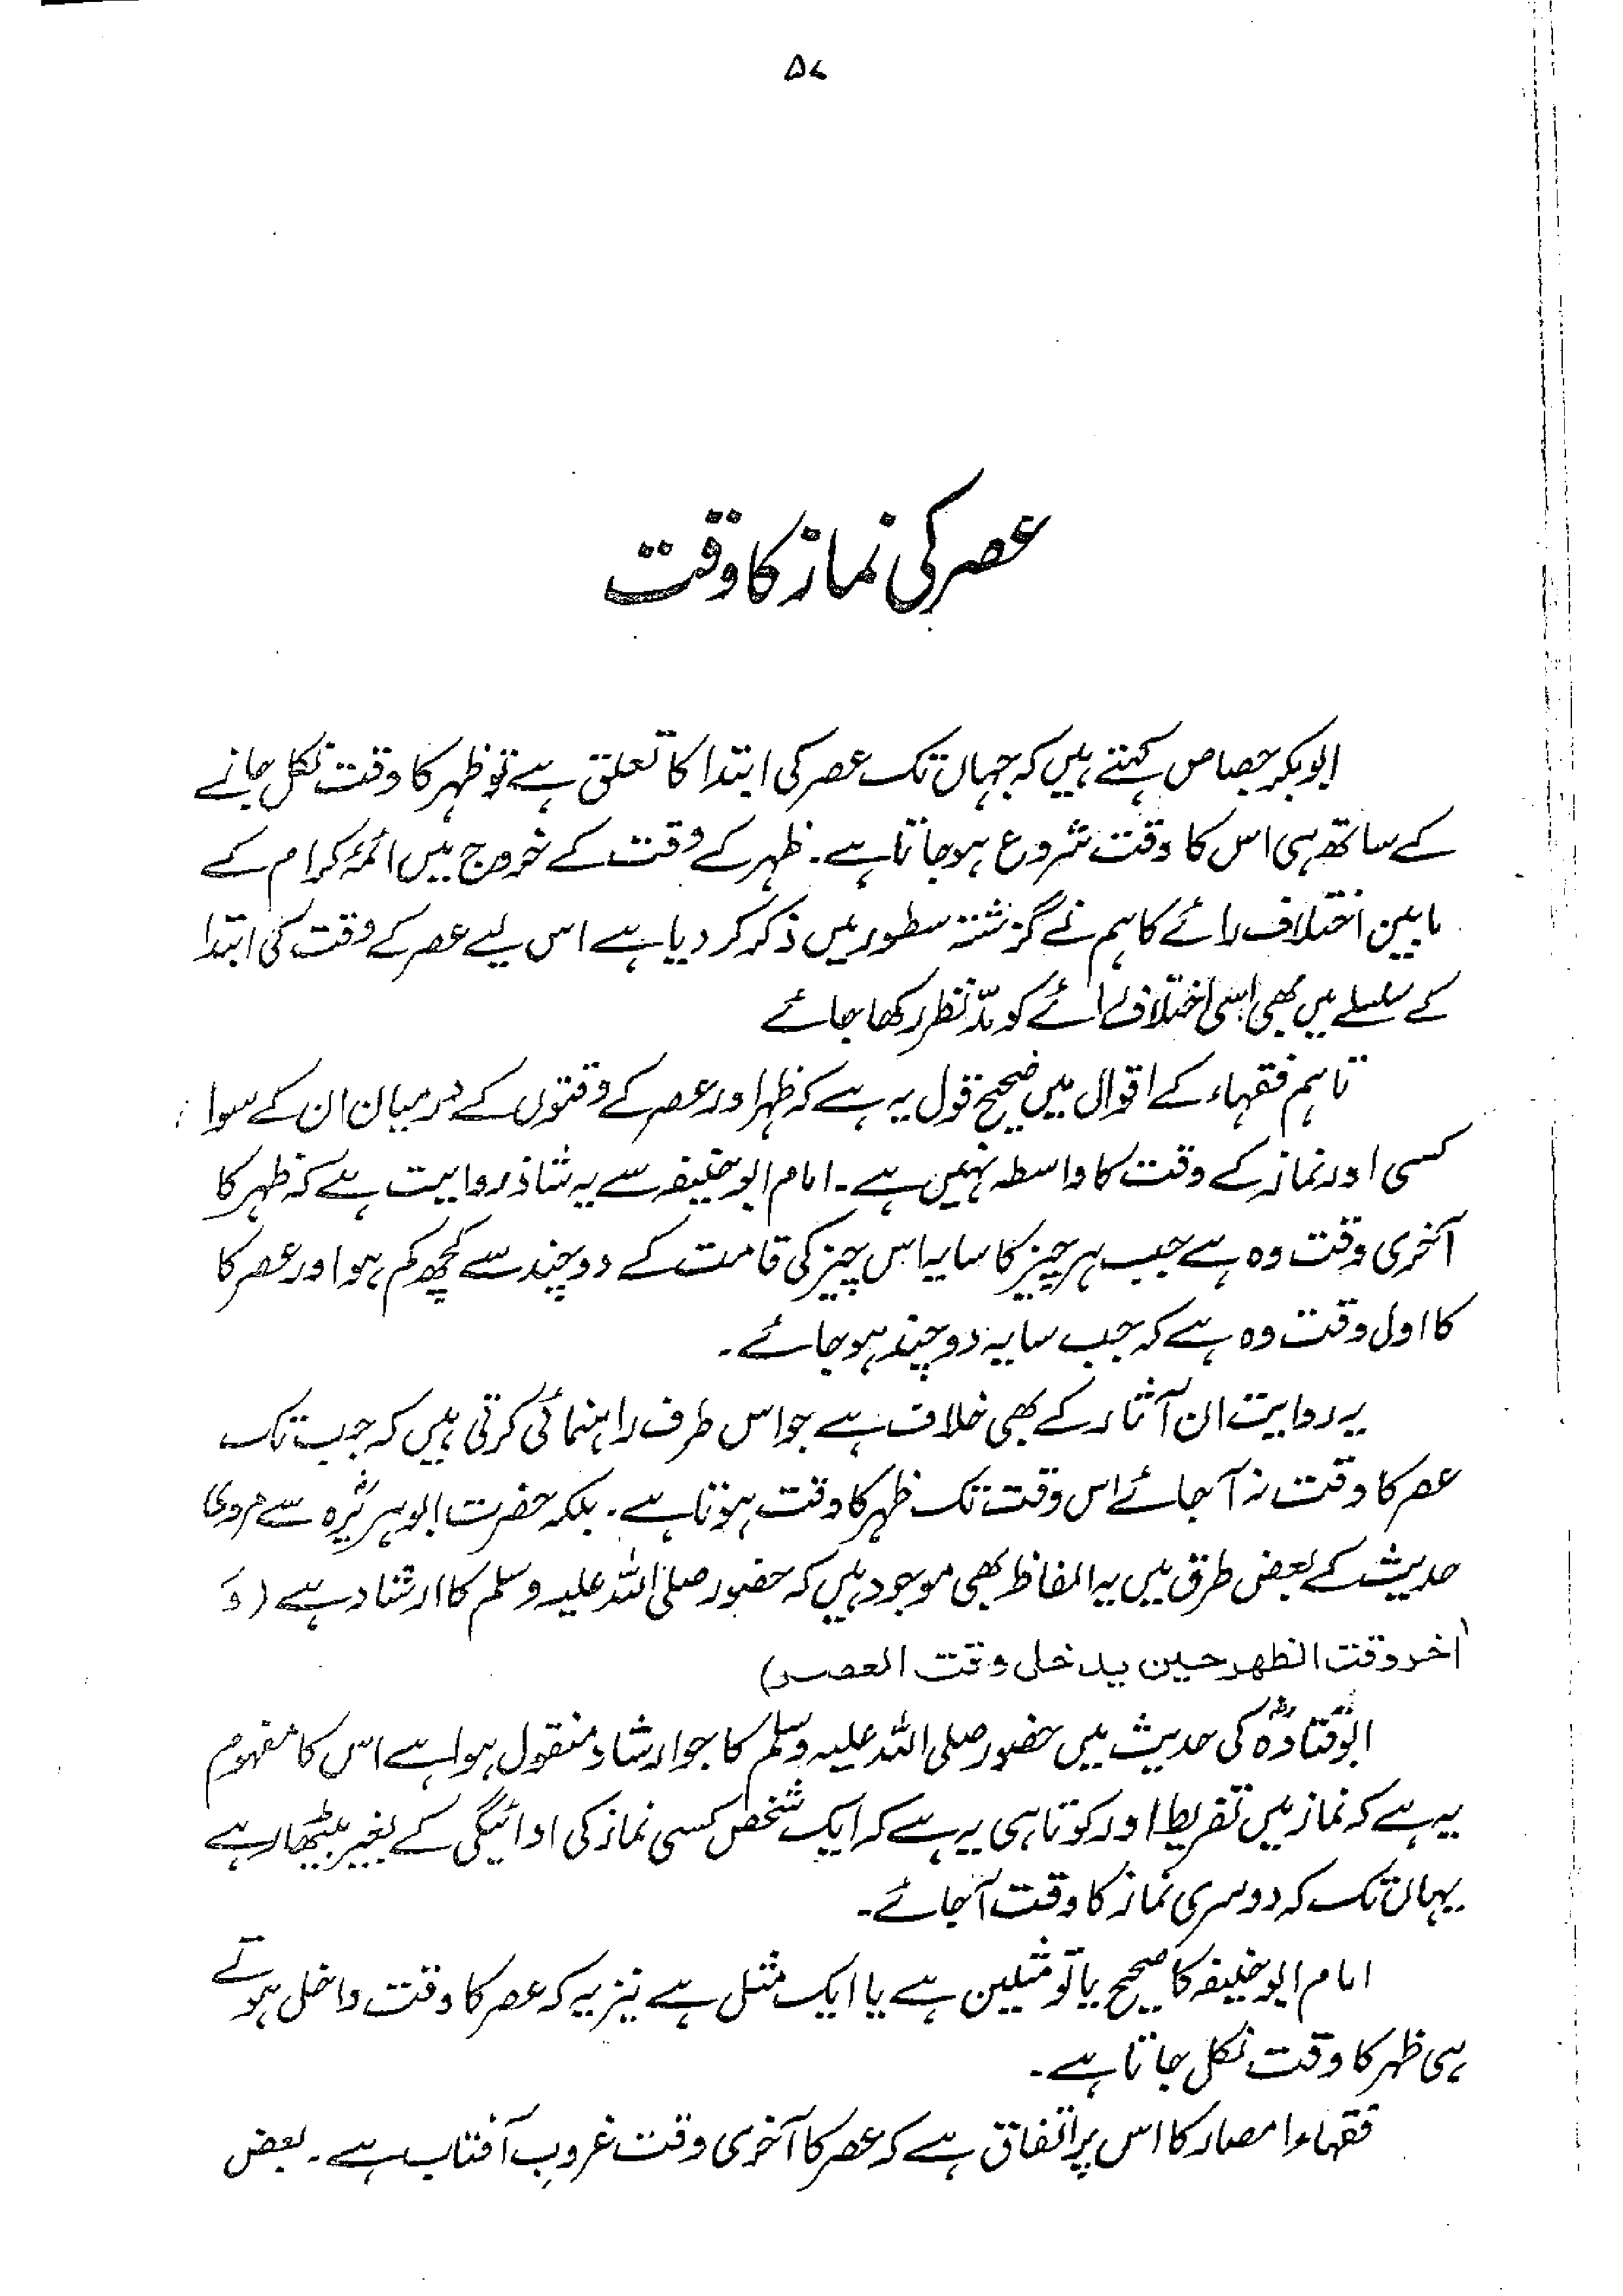 ۵۷
عصر کی نماز کا وقت
ابوبکر جصاص کہتے ہیں کہ جہاں تک عصر کی ابتدا کا تعلق ہے تو ظہر کا وقت نکل جانے
کے ساتھ ہی اس کا وقت شروع ہوجاتا ہے۔ ظہر کے وقت کے خروج میں ائمہ کرام کے
مابین اختلاف رائے کا ہم نے گزشتہ سطور میں ذکر کر دیا ہے اس لیے عصر کے وقت کی ابتدا
کے سلسلے میں بھی اسی اختلاف رائے کو مدّ نظر رکھا جائے
تاہم فقہاء کے اقوال میں صحیح قول یہ ہے کہ ظہر اور عصر کے وقتوں کے درمیان ان کے سوا
کسی اور نماز کے وقت کا واسطہ نہیں ہے۔ امام ابو حنیفہ سے یہ شاذ روایت ہے کہ ظہر کا
آخری وقت وہ ہے جب ہر چیز کا سایہ اس چیز کی قامت کے دو چند سے کچھ کم ہو اور عصر کا
کا اول وقت وہ ہے کہ جب سایہ دو چند ہو جائے۔
یہ روایت ان آثار کے بھی خلاف ہے جو اس طرف راہنمائی کرتی ہیں کہ جب تک
عصر کا وقت نہ آ جائے اس وقت تک ظہر کا وقت ہوتا ہے۔ بلکہ حضرت ابو ہریرہؓ سے مروی
حدیث کے بعض طرق میں یہ الفاظ بھی موجود ہیں کہ حضور صلی اللہ علیہ وسلم کا ارشاد ہے (وَ
اٰخر وقت الظهر حین یدخل وقت العصر)
ابو قتادہؓ کی حدیث میں حضور صلی اللہ علیہ وسلم کا جو ارشاد منقول ہوا ہے اس کا مفہوم
یہ ہے کہ نماز میں تفریط اور کوتاہی یہ ہے کہ ایک شخص کسی نماز کی ادائیگی کے بغیر بیٹھا رہے
یہاں تک کہ دوسری نماز کا وقت آ جائے۔
امام ابو حنیفہ کا صحیح یا تو مثلین ہے یا ایک مثل ہے نیز یہ کہ عصر کا وقت داخل ہوتے
ہی ظہر کا وقت نکل جاتا ہے۔
فقہاء امصار کا اس پر اتفاق ہے کہ عصر کا آخری وقت غروبِ آفتاب ہے۔ بعض